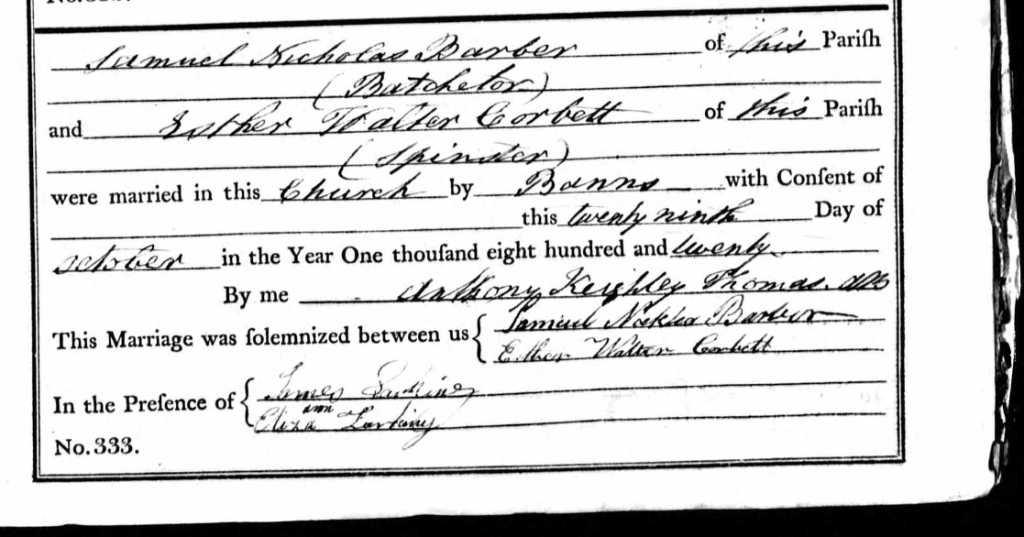 Samuel Nicholas Barber of this Pariſh
(Batchelor)
and Esther Walter Corbett of this Pariſh
(Spinster)
were married in this Church by Banns with Conſent of
this twenty ninth Day of
October in the Year One thouſand eight hundred and twenty
By me Anthony Keighley Thomas.
This Marriage was ſolemnized between us { Samuel Barber
Esther Walter Corbett
In the Preſence of { James
Eliza ann
No. 333.